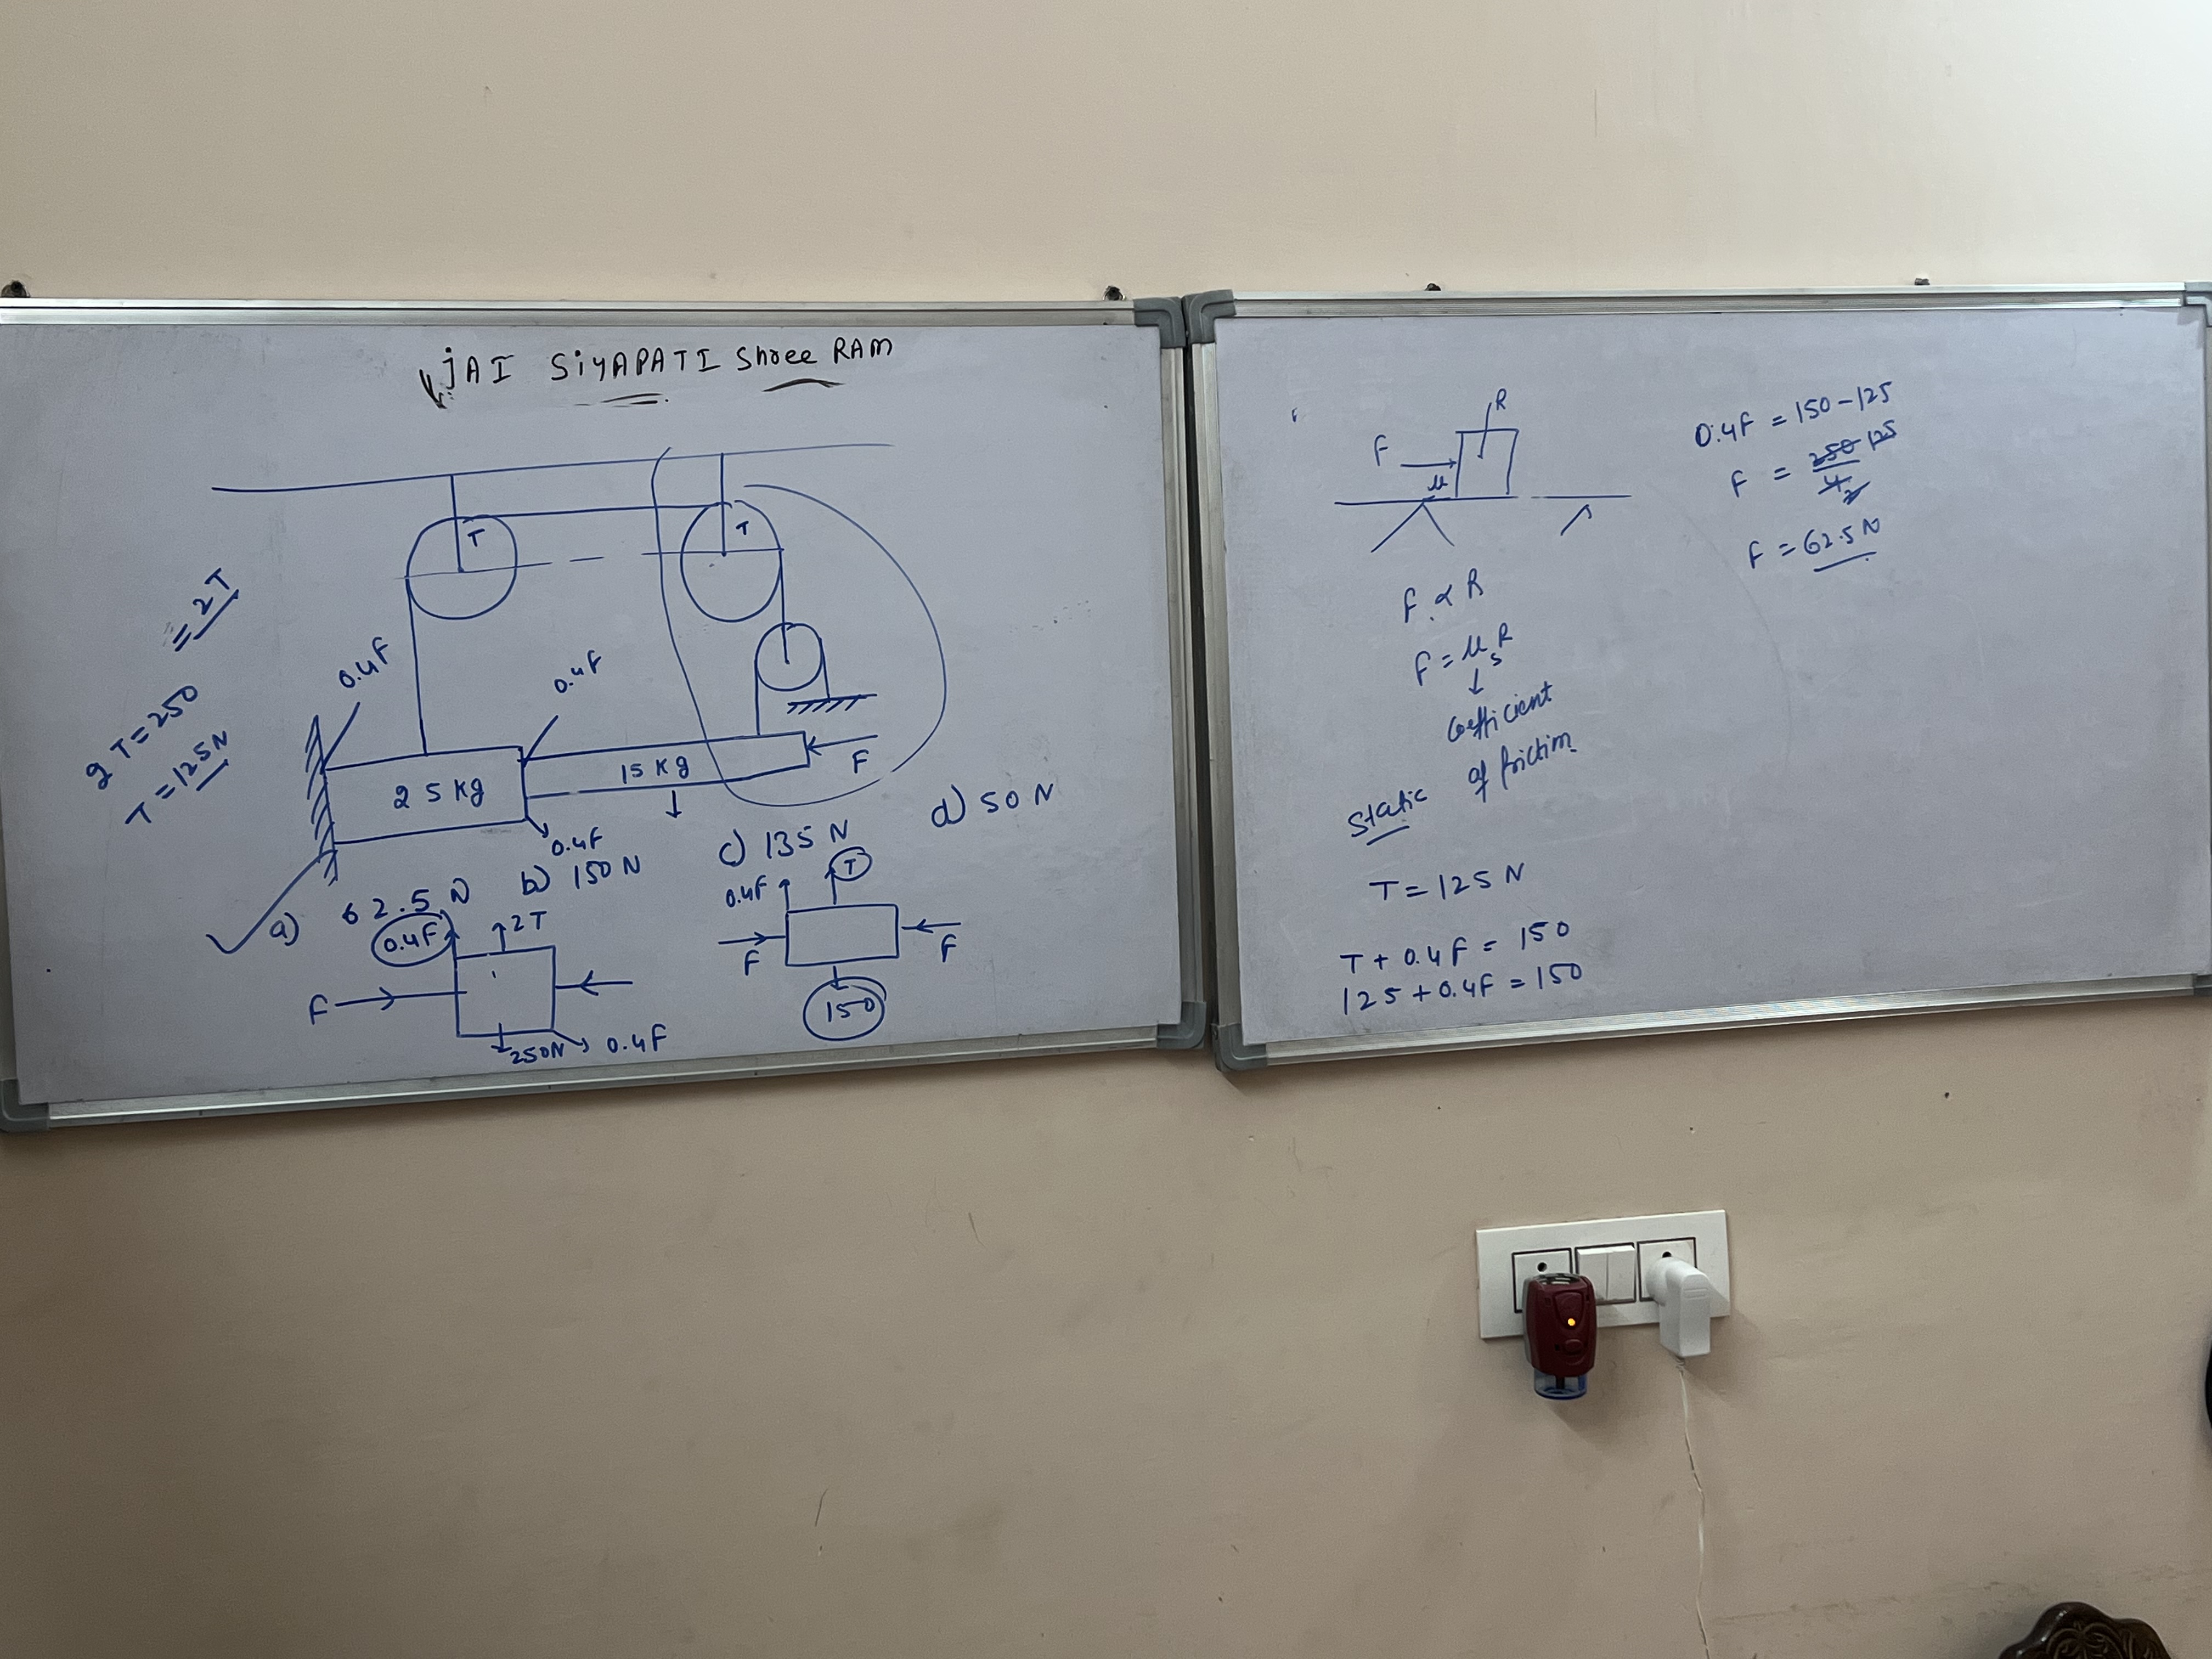 JAI SiYAPATI Shree RAM
T
T
= 2T
0.4F
0.4F
2T = 250
T = 125N
25 Kg
15 Kg
F
0.4F
a) 62.5 N
b) 150 N
c) 135 N
d) 50 N
0.4F
2T
F
250N
0.4F
0.4F
T
F
F
150
R
F
μ
F ∝ R
F = μsR
Coefficient
of friction
Static
T = 125 N
T + 0.4F = 150
125 + 0.4F = 150
0.4F = 150 - 125
F = 250 125
4 2
F = 62.5 N